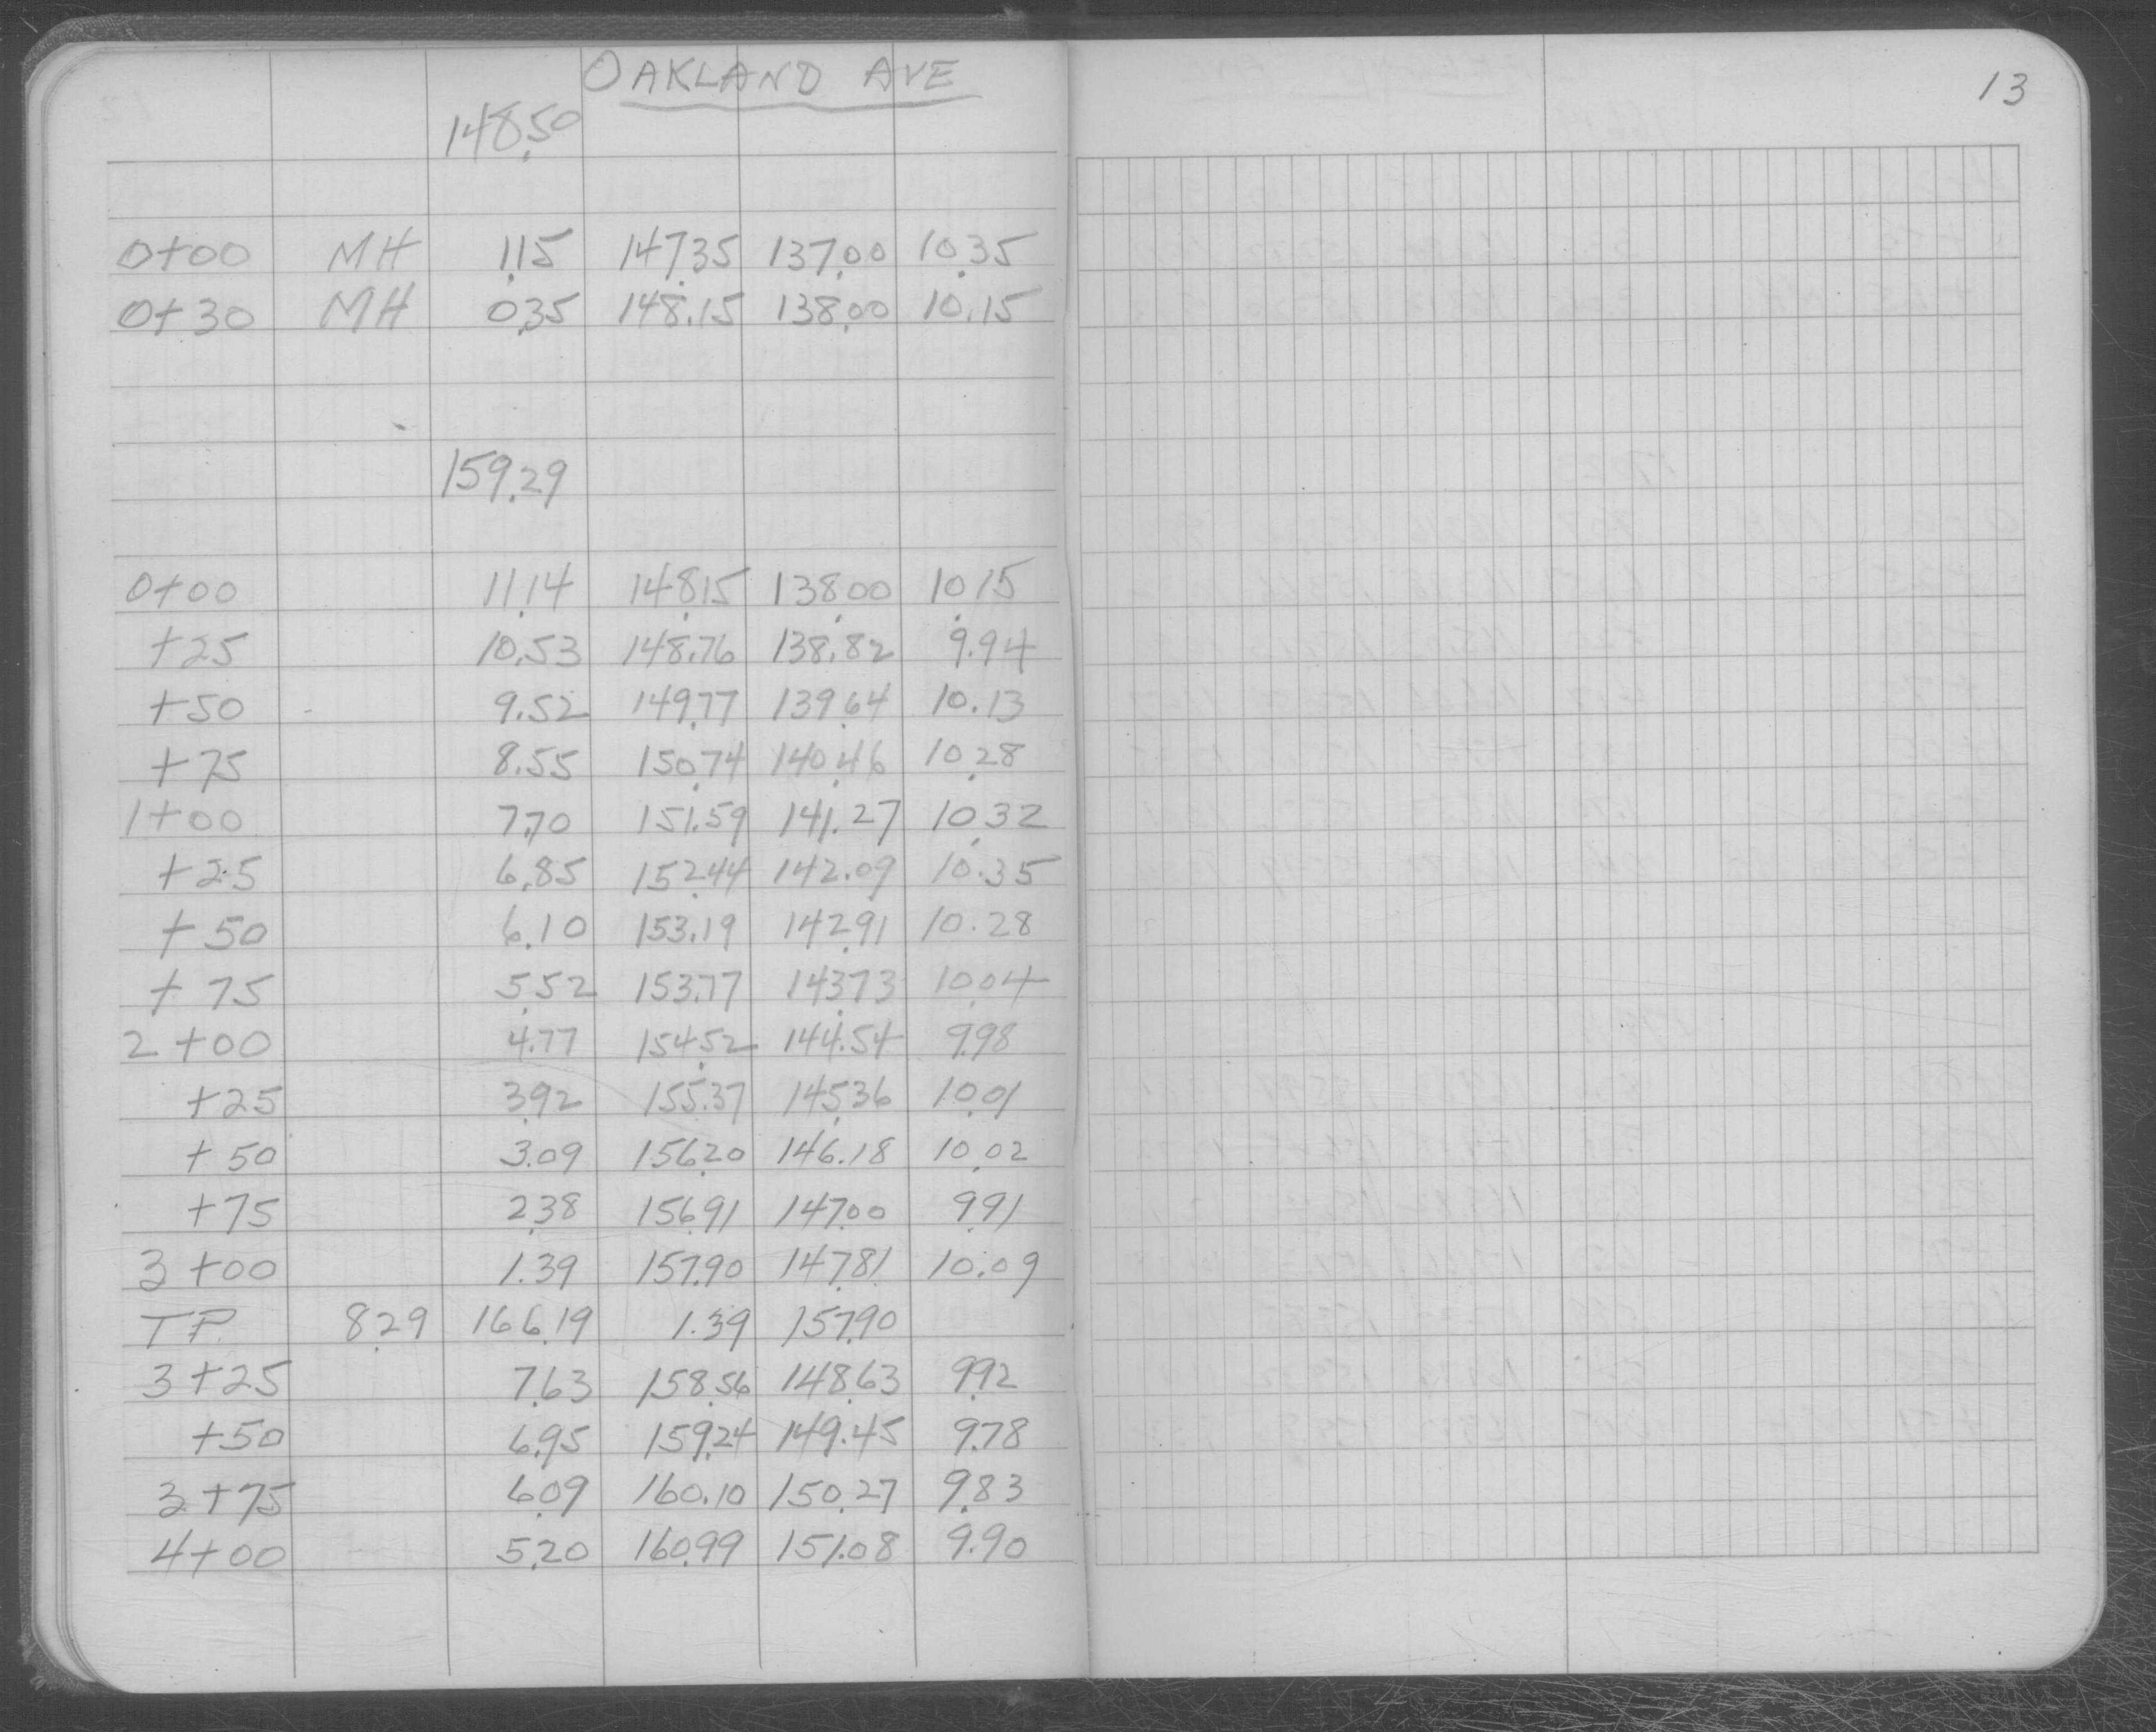 OAKLAND AVE
13
148.50
0+00 MH 1.15 147.35 137.00 10.35
0+30 MH 0.35 148.15 138.00 10.15
159.29
0+00 11.14 148.15 138.00 10.15
+25 10.53 148.76 138.82 9.94
+50 9.52 149.77 139.64 10.13
+75 8.55 150.74 140.46 10.28
1+00 7.70 151.59 141.27 10.32
+25 6.85 152.44 142.09 10.35
+50 6.10 153.19 142.91 10.28
+75 5.52 153.77 143.73 10.04
2+00 4.77 154.52 144.54 9.98
+25 3.92 155.37 145.36 10.01
+50 3.09 156.20 146.18 10.02
+75 2.38 156.91 147.00 9.91
3+00 1.39 157.90 147.81 10.09
T.P. 8.29 166.19 1.39 157.90
3+25 7.63 158.56 148.63 9.92
+50 6.95 159.24 149.45 9.78
3+75 6.09 160.10 150.27 9.83
4+00 5.20 160.99 151.08 9.90